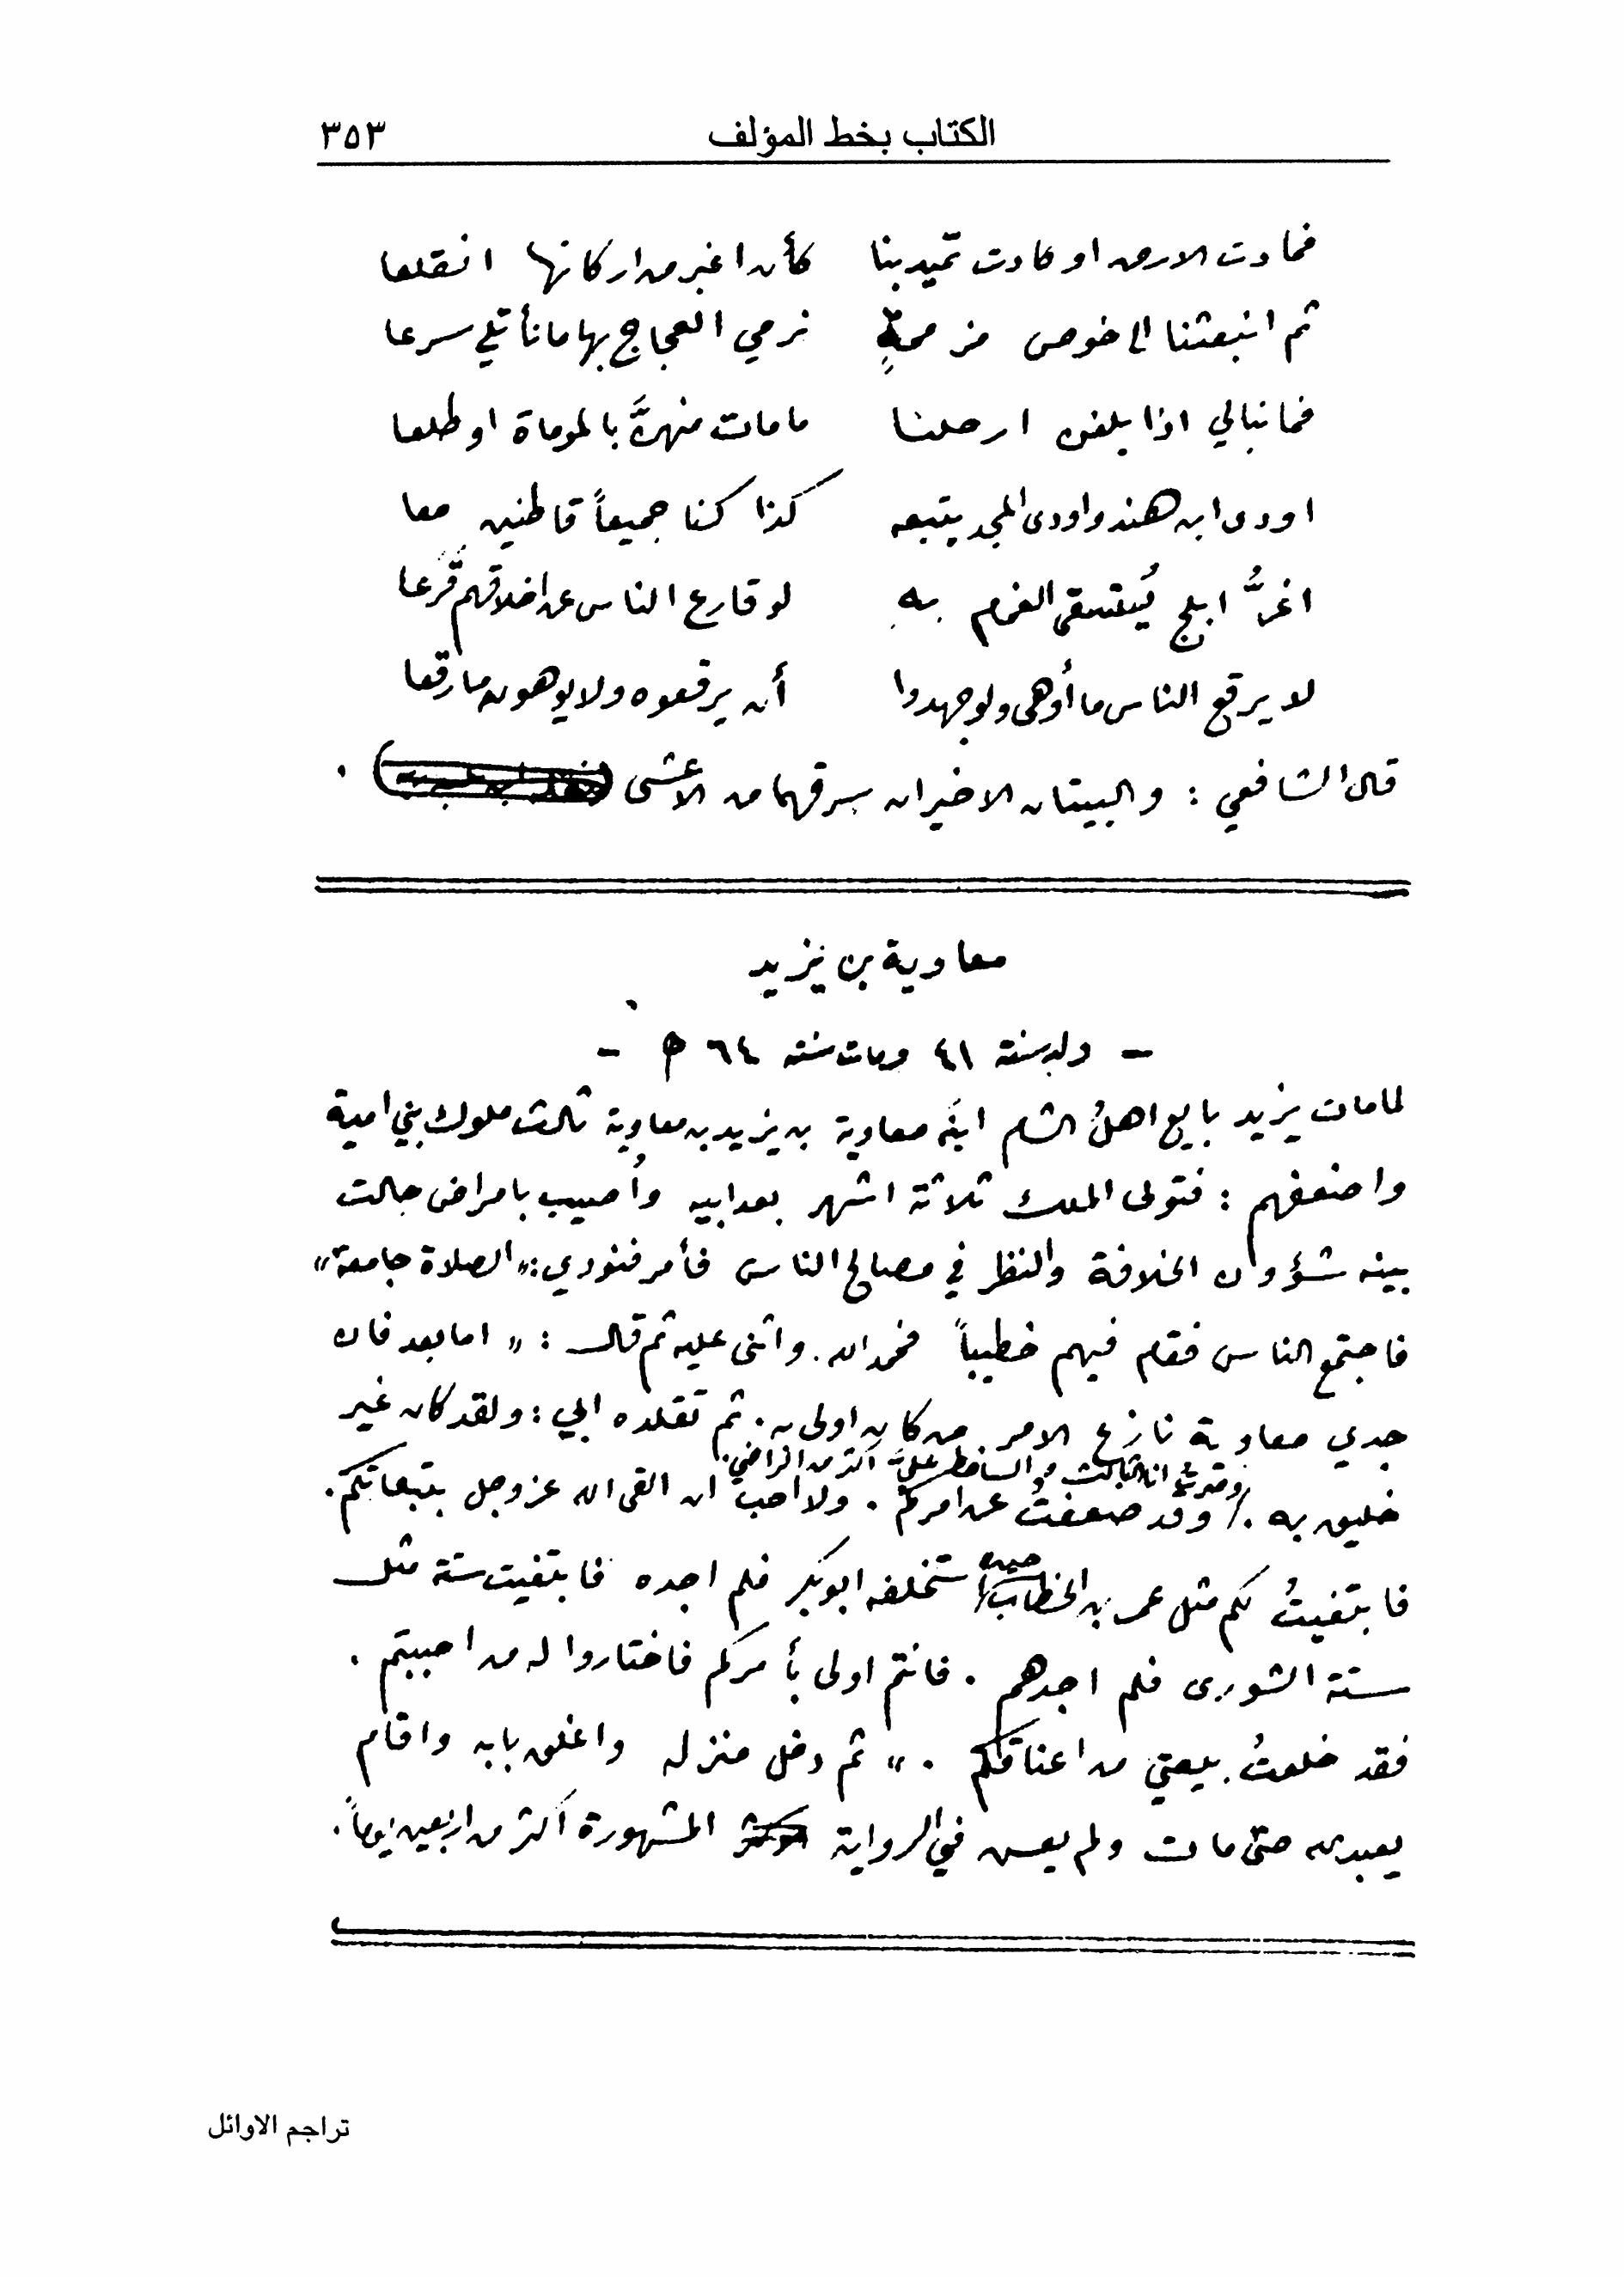 الكتاب بخط المؤلف ٣٥٣
فمادت الارض او كادت تميد بنا كأن اغبر من اركانها انقلعا
ثم انبعثنا الى خوص مزممةٍ نرمي العجاج بها ما نأتلي سرعا
فما نبالي اذا بلغن ارحلنا ما مات منهنَّ بالموماة او طلعا
اودى ابن هند واودى المجد يتبعه كذا كنا جميعاً قاطنين معا
اغرُّ ابلج يُستسقى الغمام به لو قارع الناس عن اخلاقهم قَرعا
لا يرقع الناس ما أوهى ولو جهدوا أن يرقعوه ولا يوهون ما رقعا
قال الشافعي : والبيتان الاخيران سرقهما من الاعشى .
معاوية بن يزيد
- ولد سنة ٤١ ومات سنة ٦٤ ه -
لما مات يزيد بايع اهلُ الشام ابنَه معاوية بن يزيد بن معاوية ثالث ملوك بني امية
واضعفهم : فتولى الملك ثلاثة اشهر بعد ابيه وأُصيب بامراض حالت
بينه شؤون الخلافة والنظر في مصالح الناس فأمر فنودي : "الصلاة جامعة"
فاجتمع الناس فقام فيهم خطيباً فحمد الله واثنى عليه ثم قال : " اما بعد فان
جدي معاوية نازع الامر من كان اولى به . ثم تقلده ابي : ولقد كان غير
خليق به . / وقد ضعفتُ عن امركم . ولا احب ان القى الله عز وجل بتبعاتكم .
انا الثالث والساخط عليَّ اكثر من الراضي .
فابتغيتُ لكم مثل عمر بن الخطاب حين استخلفه ابو بكر فلم اجده فابتغيت ستة مثل
ستة الشورى فلم اجدهم . فانتم اولى بأمركم فاختاروا له من احببتم .
فقد خلعتُ بيعتي من اعناقكم . " ثم دخل منزله واغلق بابه واقام
يعبد الله حتى مات ولم يعش في الرواية المشهورة اكثر من اربعين يوماً .
تراجم الاوائل